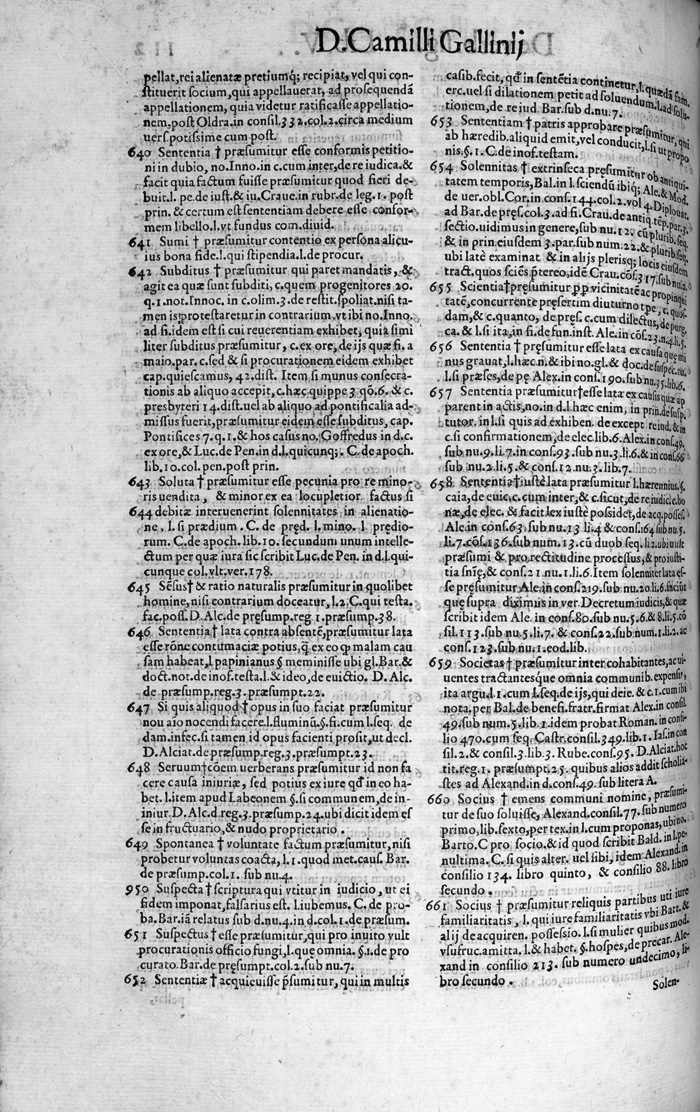 D. Camilli Gallinij
pellat, rei alienatæ pretiumq; recipiat, vel qui con-
stituerit socium, qui appellauerat, ad prosequendā
appellationem, quia videtur ratificasse appellatio-
nem, post Oldra. in consil. 332. col. 2. circa medium
uers. potissime cum post.
640 Sententia † præsumitur esse conformis petitio
ni in dubio, no. Inno. in c. cum inter, de re iudica. &
facit quia factum fuisse præsumitur quod fieri de-
buit. l. pe. de iust. & iu. Craue. in rubr. de leg. 1. post
prin. & certum est sententiam debere esse confor-
mem libello. l. vt fundus com. diuid.
641 Sumi † præsumitur contentio ex persona alicu-
ius bona fide. l. qui stipendia. l. de procur.
642 Subditus † præsumitur qui paret mandatis, &
agit ea quæ sunt subditi, c. quem progenitores 20.
q. 1. not. Innoc. in c. olim. 3. de restit. spoliat. nisi ta-
men is protestaretur in contrarium. vt ibi no. Inno.
ad fi. idem est si cui reuerentiam exhibet, quia simi
liter subditus præsumitur, c. ex ore, de ijs quæ fi. a
maio. par. c. sed & si procurationem eidem exhibet
cap. quiescamus, 42. dist. Item si munus consecra-
tionis ab aliquo accepit, c. hæc quippe 3 qō. 6. & c.
presbyteri 14. dist. uel ab aliquo ad pontificalia ad-
missus fuerit, præsumitur eidem esse subditus, cap.
Pontifices 7. q. 1. & hos casus no. Goffredus in d. c.
ex ore, & Luc. de Pen. in d. l. quicunq;. C. de apoch.
lib. 10. col. pen. post prin.
643 Soluta † præsumitur esse pecunia pro re mino-
ris uendita, & minor ex ea locupletior factus si
644 debitæ interuenerint solennitates in alienatio-
ne, l. si prædium. C. de pręd. l. mino. l prędio-
rum. C. de apoch. lib. 10. secundum unum intelle-
ctum per quæ iura sic scribit Luc. de Pen. in d. l. qui-
cunque col. vlt. ver. 178.
645 Sēsus † & ratio naturalis præsumitur in quolibet
homine, nisi contrarium doceatur, l. 2. C. qui testa.
fac. poss. D. Alc. de præsump. reg 1. præsump. 38.
646 Sententia † lata contra absentē, præsumitur lata
esse rōne contumaciæ potius, q̃ ex eo qp malam cau
sam habeat, l papinianus § meminisse ubi gl. Bar. &
doct. not. de inof. testa. l. & ideo, de euictio. D. Alc.
de præsump. reg. 3. præsumpt. 22.
647 Si quis aliquod † opus in suo faciat præsumitur
nou aīo nocendi facere. l. fluminū. §. fi. cum l. seq. de
dam. infec. si tamen id opus facienti prosit, ut decl.
D. Alciat. de præsump. reg. 3. præsumpt. 23.
648 Seruum † cōem uerberans præsumitur id non fa
cere causa iniuriæ, sed potius ex iure qď in eo ha-
bet. l. item apud Labeonem §. si communem, de in-
iniur D. Alc. d. reg. 3. præsump. 24. ubi dicit idem es
se in fructuario, & nudo proprietario.
649 Spontanea † voluntate factum præsumitur, nisi
probetur voluntas coacta, l. 1. quod met. caus. Bar.
de præsump. col. 1. sub nu. 4.
950 Suspecta † scriptura qui vtitur in iudicio, ut ei
fidem imponat, falsarius est. l. iubemus. C. de pro-
ba. Bar. iā relatus sub d. nu. 4. in d. col. 1. de præsum.
651 Suspectus † esse præsumitur, qui pro inuito vult
procurationis officio fungi, l. que omnia. §. 1. de pro
curato. Bar. de pręsumpt. col. 2. sub nu. 7.
652 Sententiæ † acquieuisse p̃sumitur, qui in multis
casib. fecit, qď in sentētia continetur, l. quædā
erc. uel si dilationem petit ad soluendum. l. ad
tionem, de re iud. Bar. sub d. nu. 7.
653 Sententiam † patris approbare præsumitur, qui
ab hæredib. aliquid emit, vel conducit, l. si ut propo
nis. §. 1. C. de inof. testam.
654 Solennitas † extrinseca præsumitur ob antiqui-
tatem temporis, Bal. in l. sciendū ibiq; Ale. & Mod.
de uer. obl. Cor. in cons. 144. col. 2. vol 4. Diplouat.
ad Bar. de pręs. col. 3. ad fi. Crau. de antiq. tēp. par. 3.
sectio. uidimus in genere, sub nu. 12. cū plurib. seq.
& in prin. eiusdem 3. par. sub num. 22. & plurib. seq.
ubi latè examinat & in alijs plerisq; locis eiusdem
tract. quos sciēs p̃tereo, idē Crau. cōs. 317. sub nu.
655 Scientia † pręsumitur p̃p vicinitatē ac propinqui
tatē, concurrente pręsertim diuturno tpe, c. quos-
dam, & c. quanto, de pręs. c. cum dilectus, de purg.
ca. & l. si ita, in fi. de fun. inst. Ale. in cōs. 23. n. 4. li. 5.
656 Sententia † pręsumitur esse lata ex causa que mi
nus grauat, l. hæc. n. & ibi no. gl. & doc. de suspec. tu.
l. si præses, de pę Alex. in cons. 190. sub nu. 35. lib. 6.
657 Sententia præsumitur † esse lata ex causis quæ ap
parent in actis, no. in d. l hæc enim, in prin. de susp.
tutor. in l. si quis ad exhiben. de except rei iud. & in
c. si confirmationem, de elec. lib. 6. Alex. in cons. 49.
sub nu. 9. li. 7. in cons. 93. sub nu. 3. li. 6. & in cons. 66
sub nu. 2. li. 5. & cons. 12. nu. 3. lib. 7.
658 Sentētia † iustè lata præsumitur l. hærennius. §.
caia, de euic. c. cum inter, & c. sicut, de re iudic. c. bo
næ, de elec. & facit lex iuste possidet, de acq. posses.
Ale. in cons. 63. sub nu. 13. li. 4 & cons. 164 sub nu. 5.
li. 7. cōs. 136. sub num. 13. cū duob seq. li. 2. ubi uult
præsumi & pro rectitudine processus, & pro iusti-
tia snīę, & cons. 21. nu. 1. li. 6. Item solenniter lata es-
se pręsumitur Ale. in cons. 219. sub nu. 20. li. 6. faciūt
que supra diximus in ver. Decretum iudicis, & quæ
scribit idem Ale. in cons. 80. sub nu. 5. 6. & 8. li. 5. cō
sil. 113. sub nu. 5. li. 7. & cons. 22. sub num. 1. li. 2. ac
cons. 123. sub nu. 1. eod. lib.
659 Societas † præsumitur inter cohabitantes, ac ui-
uentes tractantesque omnia communib. expensis,
ita argu d. l. cum l. seq. de ijs, qui deie. & c. 1. cum ibi
nota. per Bal. de benefi. fratr. firmat Alex. in consil
49. sub num. 5. lib. 1. idem probat Roman. in consi-
lio 470. cum seq. Castr. consil. 349. lib. 1. Ias. in con
sil. 2. & consil. 3. lib. 3. Rube. cons. 95. D. Alciat. hoc
tit. reg. 1. præsumpt. 25. quibus alios addit scholia-
stes ad Alexand. in d. cons. 49. sub litera A.
660 Socius † emens communi nomine, præsumi-
tur de suo soluisse, Alexand. consil. 77. sub numero
primo, lib. sexto, per tex. in l. cum proponas, ubi no.
Barto. C pro socio. & id quod scribit Bald. in l. pe-
nultima. C. si quis alter. uel sibi, idem Alexand. in
consilio 134. libro quinto, & consilio 88. libro
secundo.
661 Socius † præsumitur reliquis partibus uti iure
familiaritatis, l. qui iure familiaritatis vbi Bart. &
alij de acquiren. possessio. l. si mulier quibus mod.
vsufruc. amitta. l. & habet. §. hospes, de precar. Ale-
xand in consilio 213. sub numero undecimo, li-
bro secundo.
Solen-